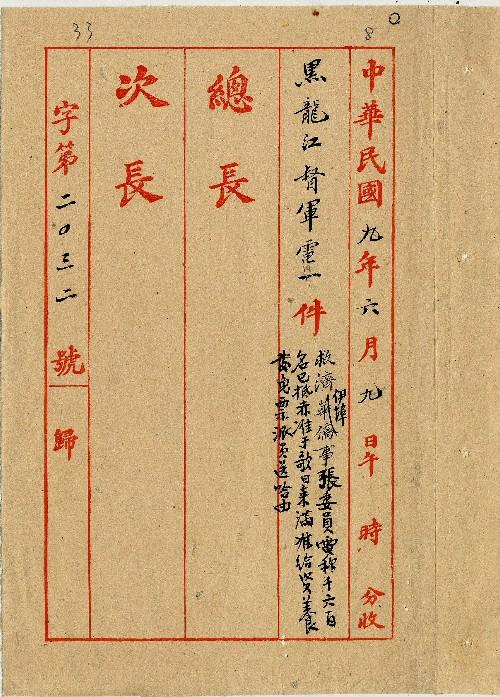 33
8
中華民國九年六月九日午 時 分收
黑龍江督軍電一件
救濟伊埠華僑事張委員電稱千六百
名已抵赤准于歌日來滿准給出養
免票派員送哈由
總長
次長
字第二〇三二號歸